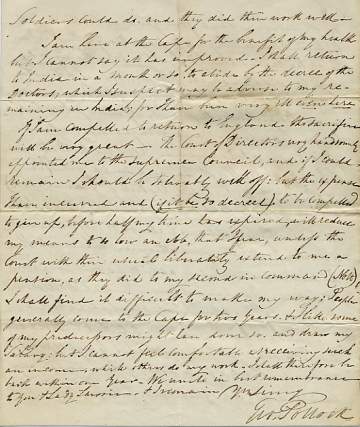 Soldiers could do, and they did their work well —
I am here at the Cape for the benefit of my health
but I cannot say it has improved. I shall return
to India in a month or so, to abide by the decree of the
Doctors, which I suspect may be adverse to my re-
maining in India; for I have been very ill even here
If I am compelled to return to England the sacrifice
will be very great — the Court of Directors very handsomely
appointed me to the Supreme Council, and if I could
remain I should be tolerably well off: but the expense
I have incurred and (if it be so decreed) to be compelled
to give up, before half my time has expired, will reduce
my means to so low an ebb, that I fear, unless the
Court with their usual liberality extend to me a
pension, as they did to my second in command
I shall find it difficult to make my way; People
generally come to the Cape for two years. & I like some
of my predecessors might have done so, and draw my
Salary: but I cannot feel comfortable at receiving such
an income, while others do my work. I shall therefore be
back within one Year. We unite in best remembrance
to you & Lady & I remain Yours
Geo. Pollock